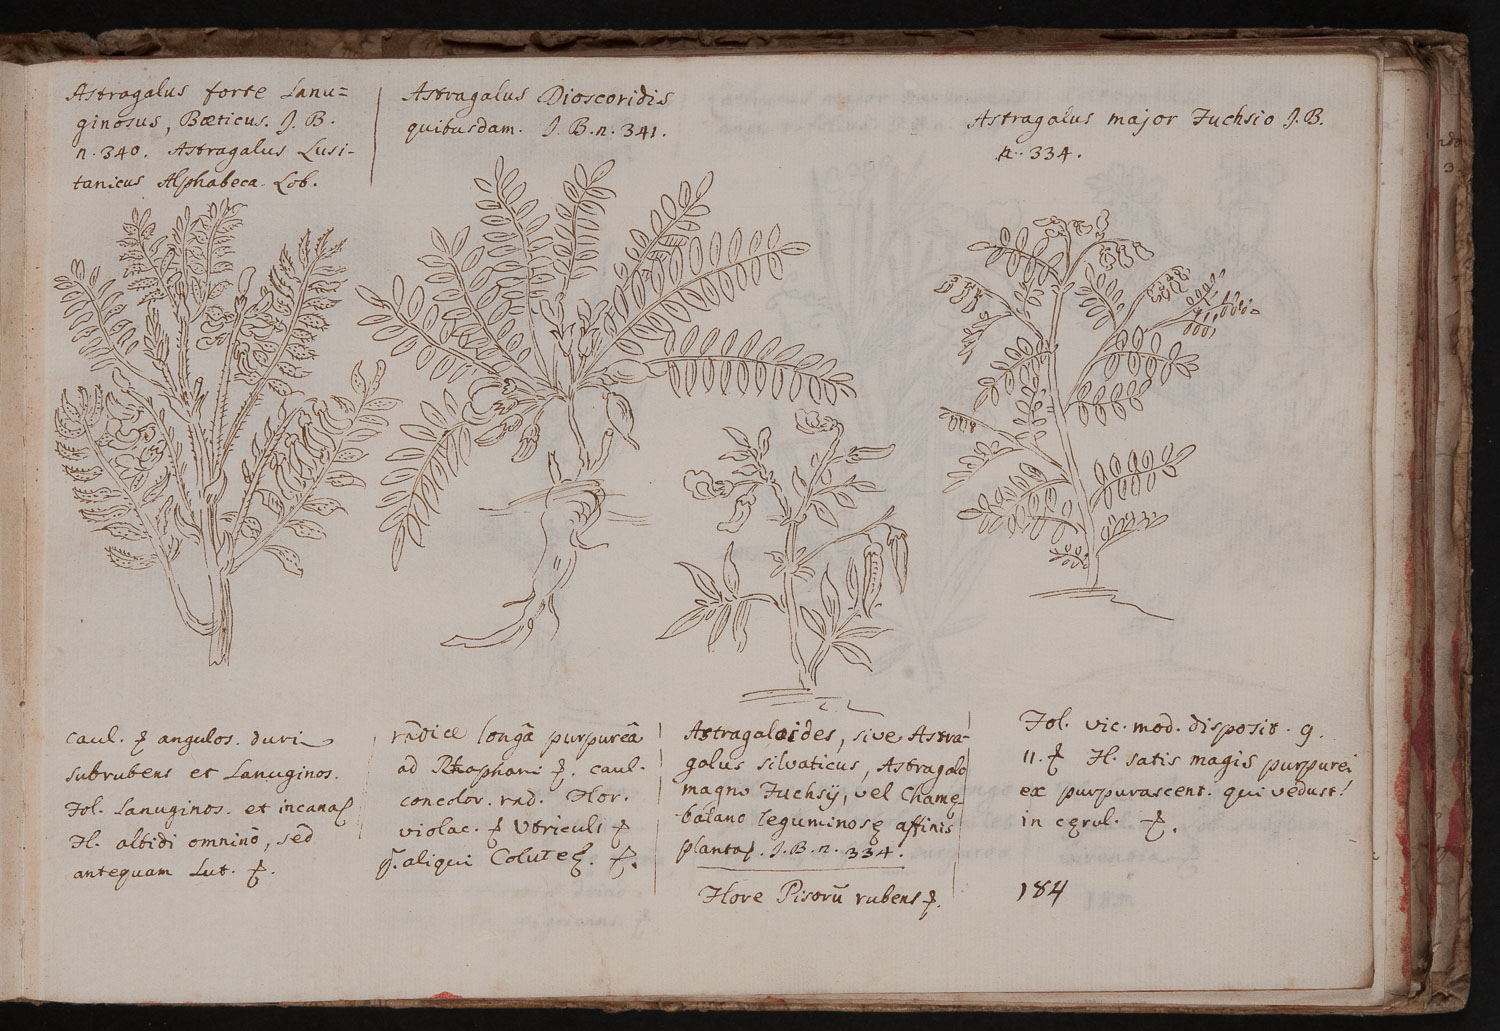 Astragalus forte Lanu=
ginosus, Bæticus. J. B.
n. 340. Astragalus Lusi-
tanicus Alphabeca Lob.
Astragalus Dioscoridis
quibusdam. J. B. n. 341.
Astragalus major Fuchsio J. B.
n. 334.
caul. angulos. duri
subrubens et Lanuginos.
Fol. Lanuginos. et incana
Fl. albidi omninò, sed
antequam Lut.
radice longâ purpureâ
ad Raphani caul.
concolor. rad. Flor.
violac. Utriculi
aliqui Coluteę.
Astragaloides, sive Astra-
galus silvaticus, Astragalo
magno Fuchsij, vel Chamę
balano leguminosę affinis
planta. J. B. n. 334.
Flore Pisorū rubens
Fol. vic. mod. disposit. 9.
11. Fl. satis magis purpurei
ex purpurascent. qui vedust.
in cęrul.
184